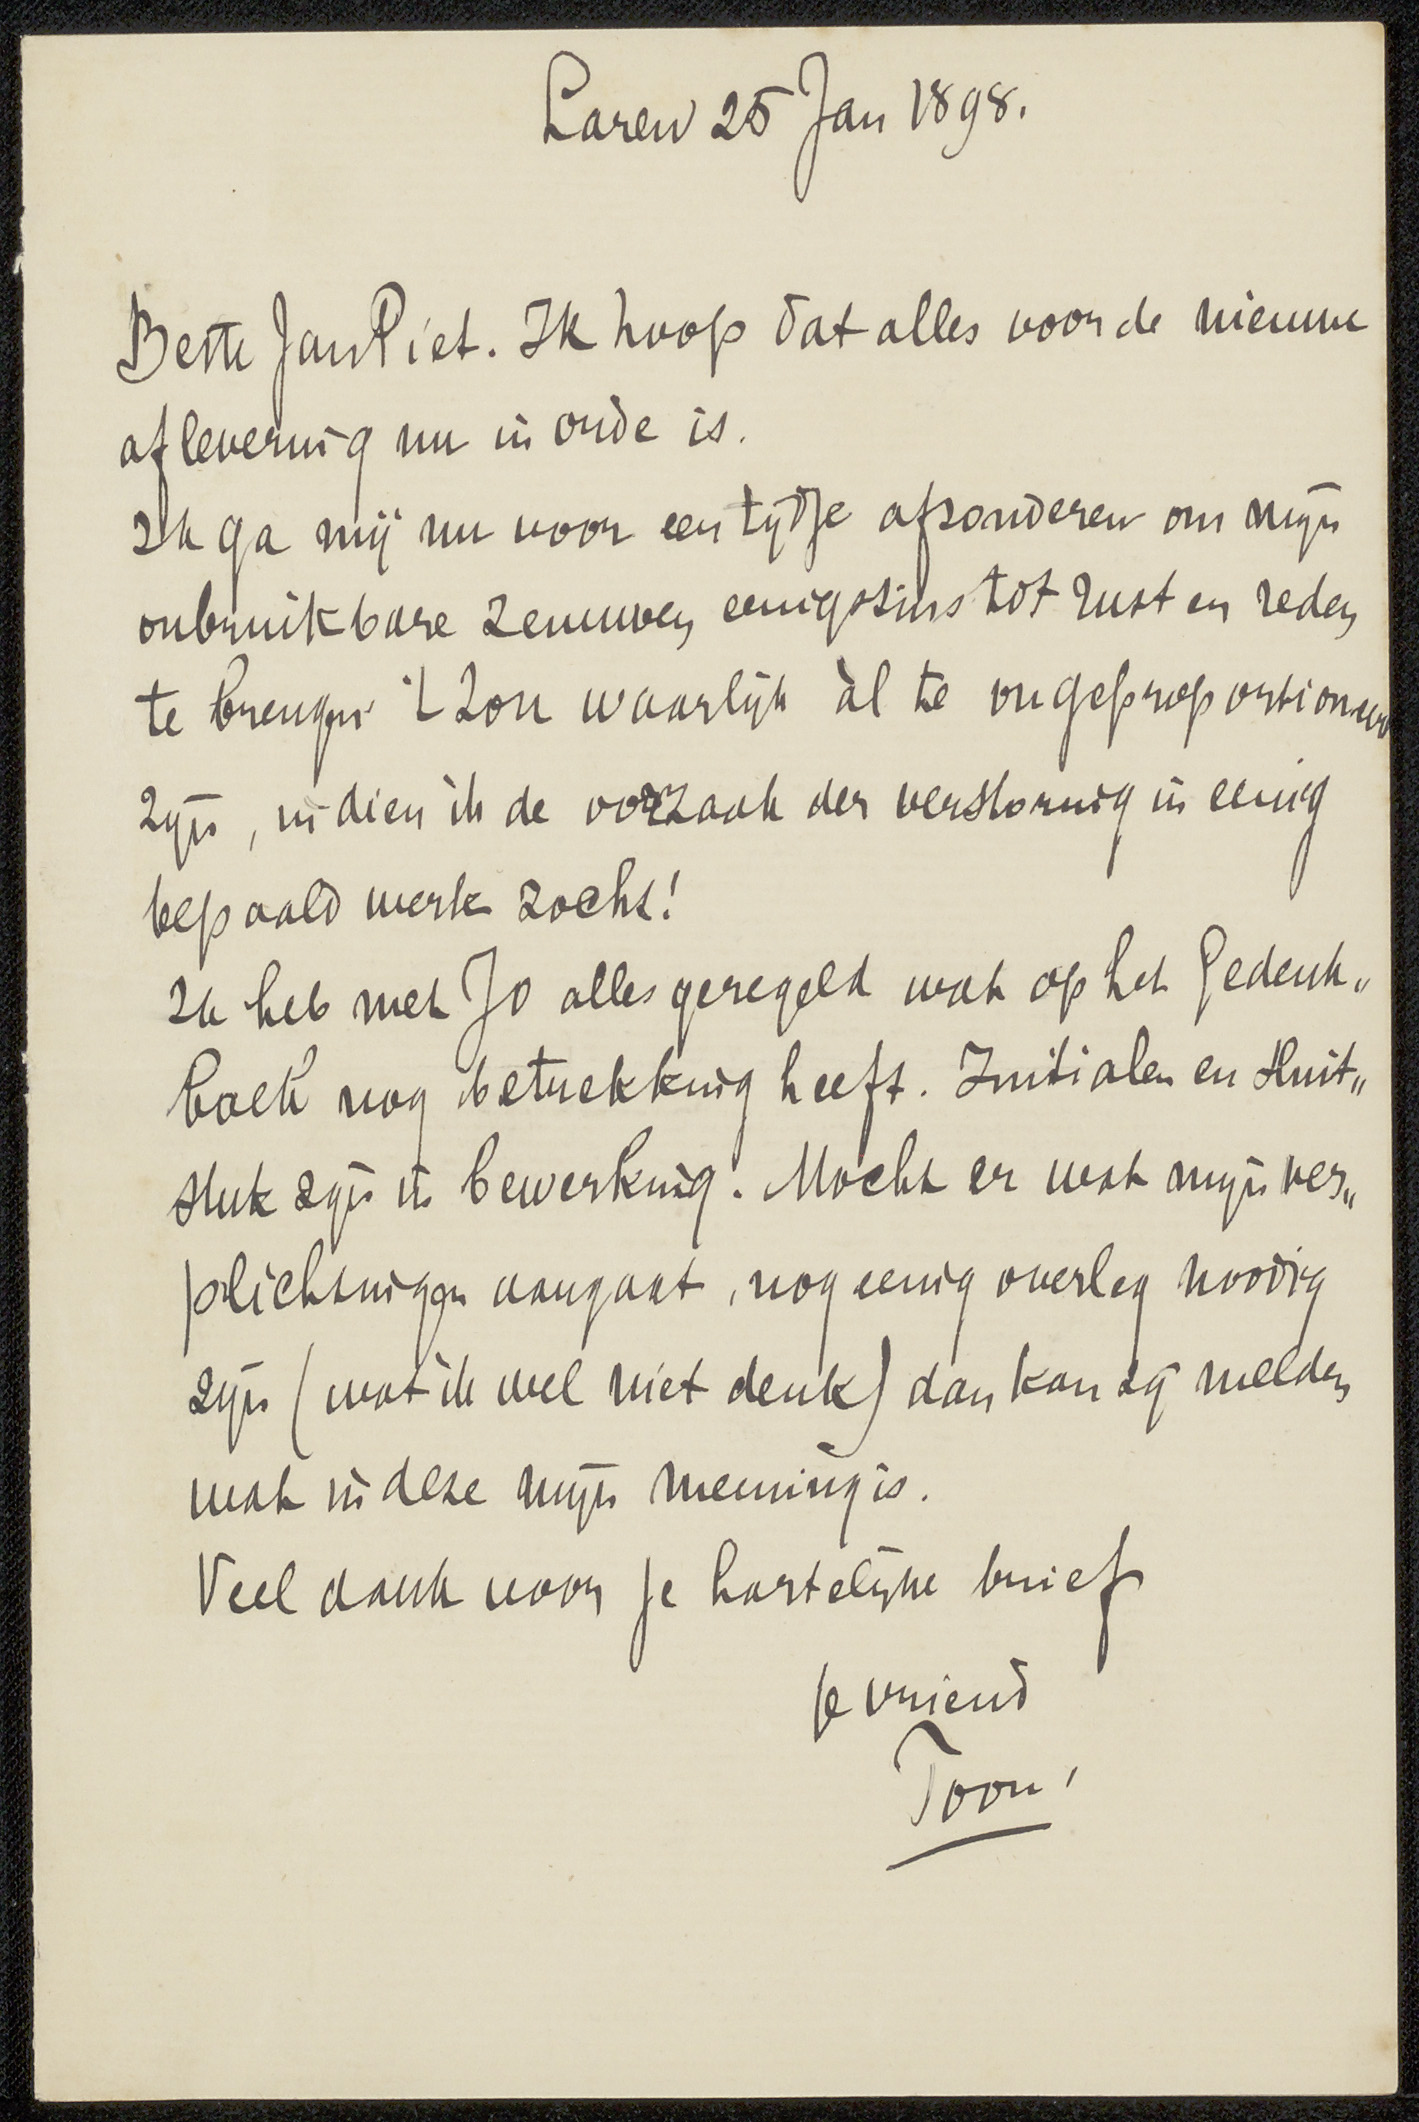 Laren 25 Jan 1898.
Beste JanPiet. Ik hoop dat alles voor de nieuwe
aflevering nu in orde is.
Ik ga mij nu voor een tijdje afzonderen om mijn
onbruikbare zenuwen eenigszins tot rust en reden
te brengen 't zou waarlijk àl te ongeproportioneerd
zijn, indien ik de oorzaak der verstoring in eenig
bepaald werk zocht!
Ik heb met Jo alles geregeld wat op het Gedenk„
boek nog betrekking heeft. Initialen en sluit„
stuk zijn in bewerking. Mocht er wat mijn ver„
plichtingen aangaat, nog eenig overleg noodig
zijn (wat ik wel niet denk) dan kan zij melden
wat in deze mijn meening is.
Veel dank voor je hartelijke brief
je vriend
Toon!